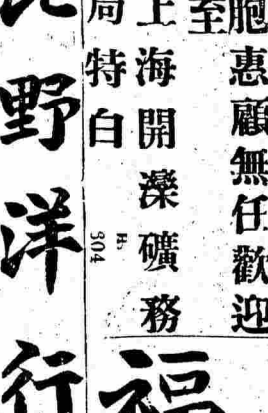 胞惠顧無任歡迎
至
上海開灤礦務
局特白
匹304
野洋行
福